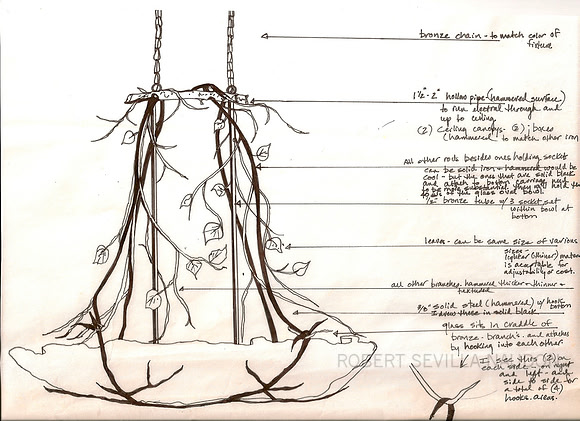 bronze chain - to match color of
fixture
1 1/2" - 2" hollow pipe (hammered surface)
to run electral through and
up to ceiling
(2) ceiling canopys - (2) j boxes
(hammered to match other iron
All other rods besides ones holding socket
can be solid iron + hammered would be
cool - but the ones that are solid black
and attach to bottom carriage need
to be more substantial they will hold the
of the glass over bowl
1/2" bronze tube w/ 3 socket set
within bowl at
bottom
leaves - can be same size or various
sizes -
lighter (thinner) material
is acceptable for
adjustability or cost.
all other branches - hammered thicker + thinner +
textured
3/8" solid steel (hammered) w/ hook
bottom
I drew these in solid black
glass sits in craddle of
bronze - branch's - and attaches
by hooking into each other
ROBERT SEVILLA
I see this (2) on
each side - on right
and left - and
side to side - for
a total of (4)
hooks. areas.